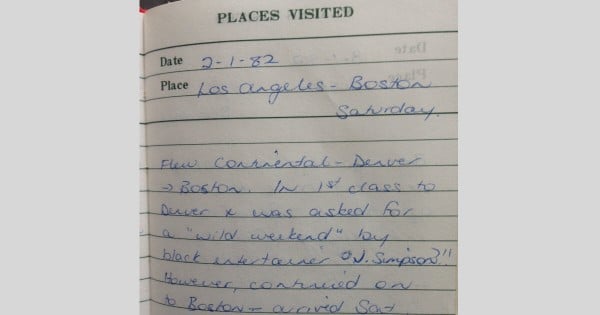 PLACES VISITED
Date 2-1-82
Place Los Angeles - Boston
Saturday.
Flew Continental - Denver
→ Boston. In 1st class to
Denver & was asked for
a "wild weekend" by
black entertainer "O.J. Simpson?!!
However, continued on
to Boston - arrived Sat